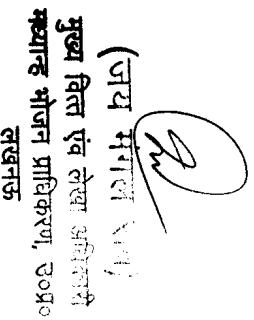 (जय मंगल राव)
मुख्य वित्त एवं लेखा अधिकारी
मध्यान्ह भोजन प्राधिकरण, उ०प्र०
लखनऊ